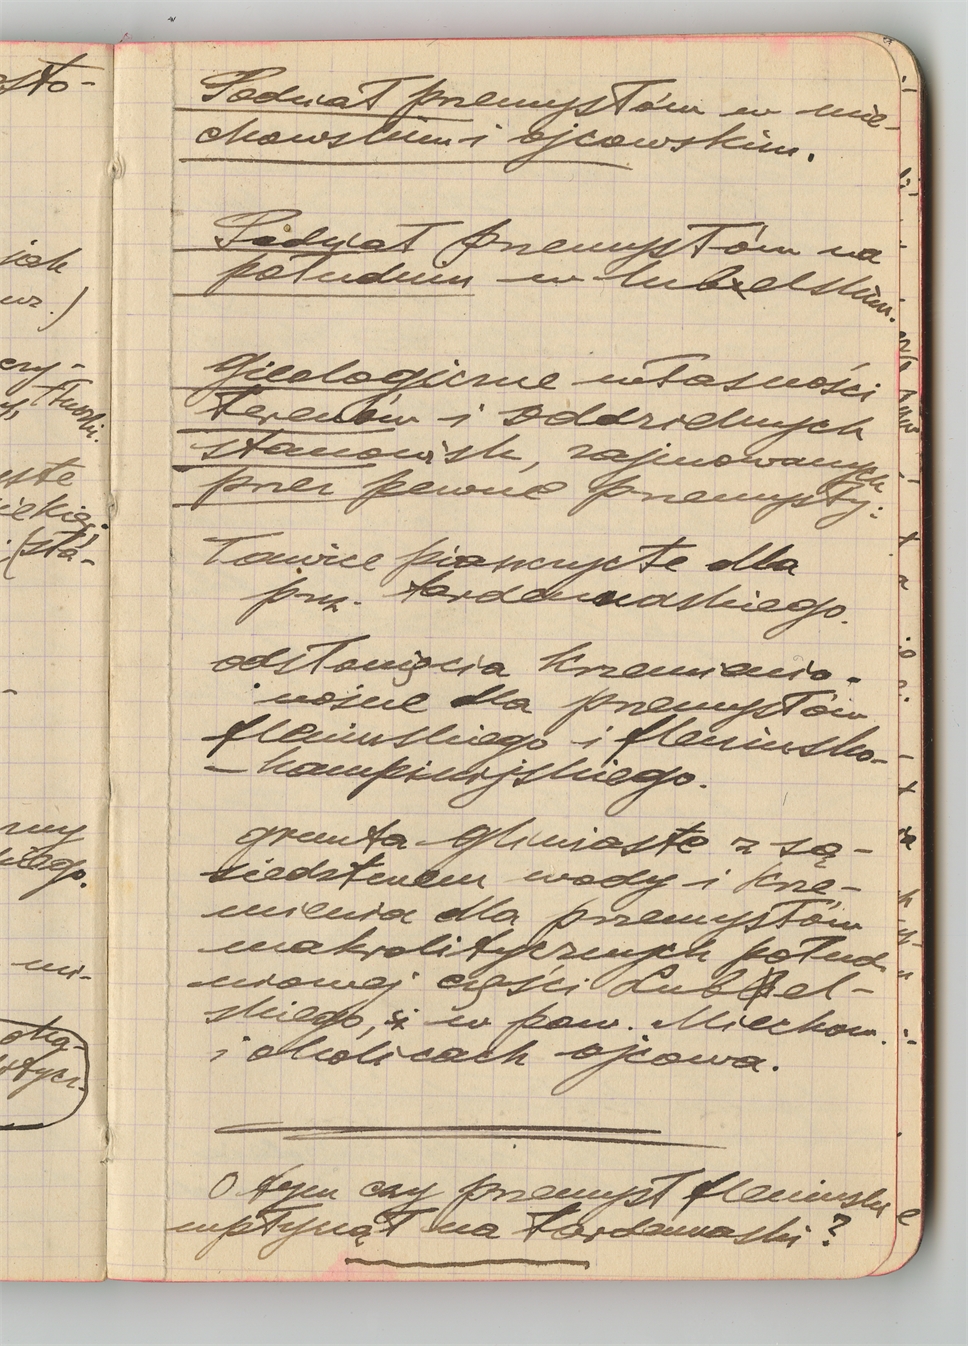 Podział przemysłów w mie-
chowskim i ojcowskim.
Podział przemysłów na
południu w lubelskim.
Gieologiczne własności
terenów i oddzielnych
stanowisk, zajmowanych
przez pewne przemysły:
Ławice piaszczyste dla
prz. tardenuaskiego.
odsłonięcia krzemienio-
nośne dla przemysłów
fleniuskiego i fleniusko-
-kampinijskiego.
grunta gliniaste z są-
siedztwem wody i krze-
mienia dla przemysłów
makrolitycznych połud-
niowej części Lubel-
skiego, i w pow. Miechow.
i okolicach ojcowa.
O tym czy przemysł fleniuski
wpłynął na tardenuaski?
sto-
ich
wz.)
czy-
(sta-
kiego.